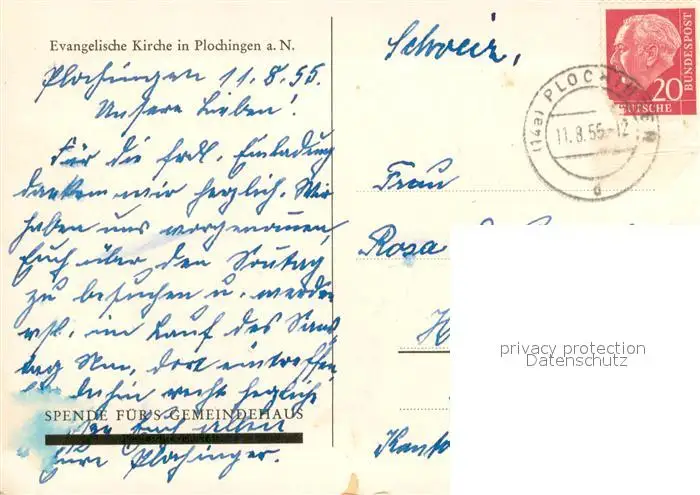 Evangelische Kirche in Plochingen a. N.
Plochingen 11.8.55.
Unsere Lieben!
Für die frdl. Einladung
danken wir herzlich. Wir
haben uns vorgenommen,
Euch über den Sonntag
zu besuchen u. werden
im Lauf des Sams
tag Nm. dort eintreffen.
Bis dahin recht herzlich
SPENDE FÜR'S GEMEINDEHAUS
Euch allen
Eure Plochinger.
Schweiz,
DEUTSCHE BUNDESPOST
20
(14a) PLOCHINGEN
11.8.55.-12
d
Frau
Rosa
Kanto
privacy protection
Datenschutz